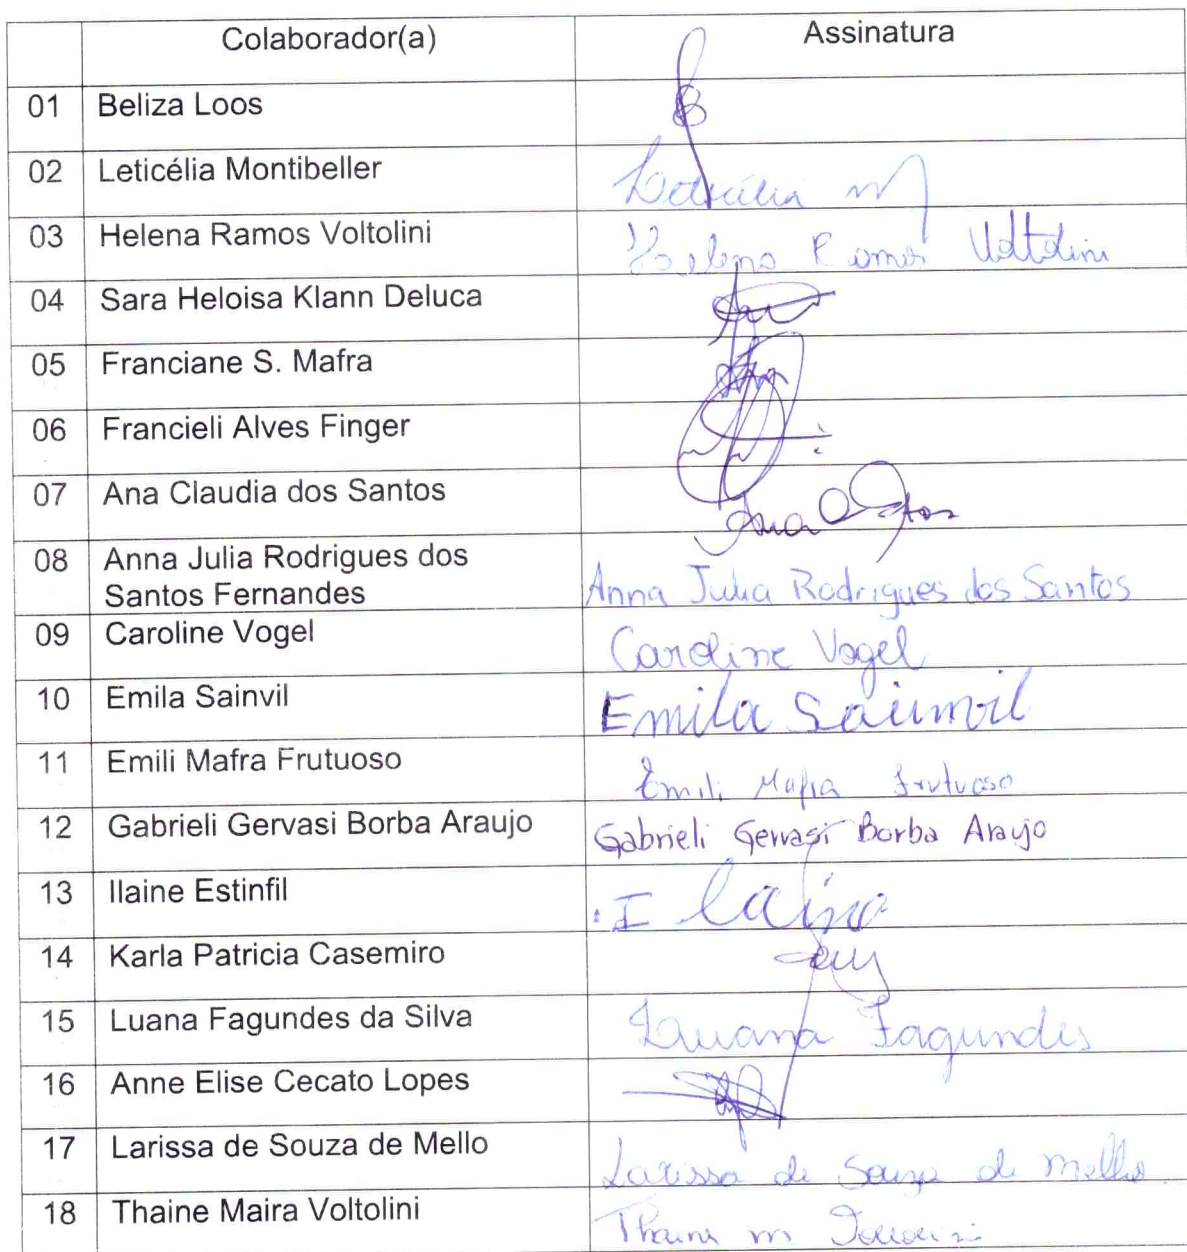 Colaborador(a) Assinatura
01 Beliza Loos
02 Leticélia Montibeller Leticélia M
03 Helena Ramos Voltolini Helena Ramos Voltolini
04 Sara Heloisa Klann Deluca
05 Franciane S. Mafra
06 Francieli Alves Finger
07 Ana Claudia dos Santos Ana
08 Anna Julia Rodrigues dos
Santos Fernandes Anna Julia Rodrigues dos Santos
09 Caroline Vogel Caroline Vogel
10 Emila Sainvil Emila Sainvil
11 Emili Mafra Frutuoso Emili Mafra Frutuoso
12 Gabrieli Gervasi Borba Araujo Gabrieli Gervasi Borba Araujo
13 Ilaine Estinfil
14 Karla Patricia Casemiro
15 Luana Fagundes da Silva Luana Fagundes
16 Anne Elise Cecato Lopes
17 Larissa de Souza de Mello Larissa de Souza de Mello
18 Thaine Maira Voltolini Thaine M